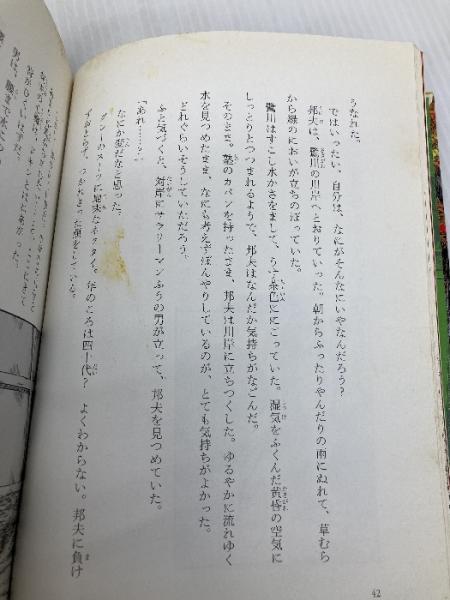 うなれた。
ではいったい、自分は、なにがそんなにいやなんだろう？
邦夫は、鷺川の川岸へとおりていった。朝からふったりやんだりの雨にぬれて、草むら
から緑のにおいが立ちのぼっていた。
鷺川はすこし水かさをまして、うす茶色ににごっていた。湿気をふくんだ黄昏の空気に
しっとりとつつまれるようで、邦夫はなんだか気持ちがなごんだ。
そのまま、塾のカバンを持ったまま、邦夫は川岸に立ちつくした。ゆるやかに流れゆく
水を見つめたまま、なにも考えずぼんやりしているのが、とても気持ちがよかった。
どれぐらいそうしていただろう。
ふと気づくと、対岸にサラリーマンふうの男が立って、邦夫を見つめていた。
「あれ……？」
なにか変だなと思った。
グレーのスーツに地味なネクタイ。年のころは四十代？　よくわからない。邦夫に負け
ずおとらず、つかれきった顔をしている。
42